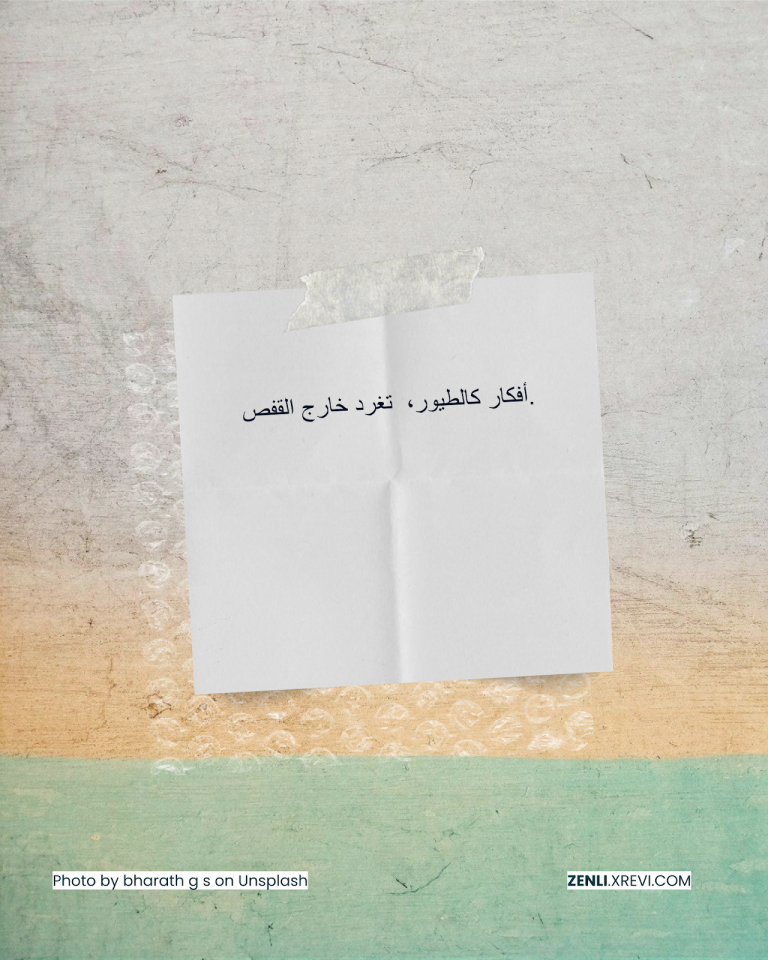 .أفكار كالطيور، تغرد خارج القفص
Photo by bharath g s on Unsplash
ZENLI.XREVI.COM